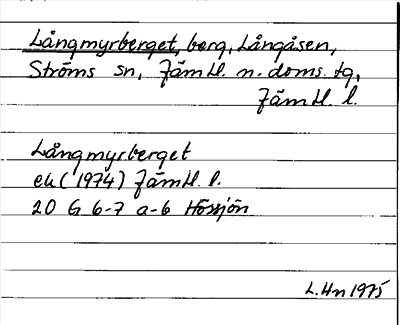 Långmyrberget, berg, Långåsen,
Ströms sn, Jämtl. n. doms. tg,
Jämtl. l.
Långmyrberget
ek (1974) Jämtl. l.
20 G 6-7 a-b Hössjön
L. Hn 1975